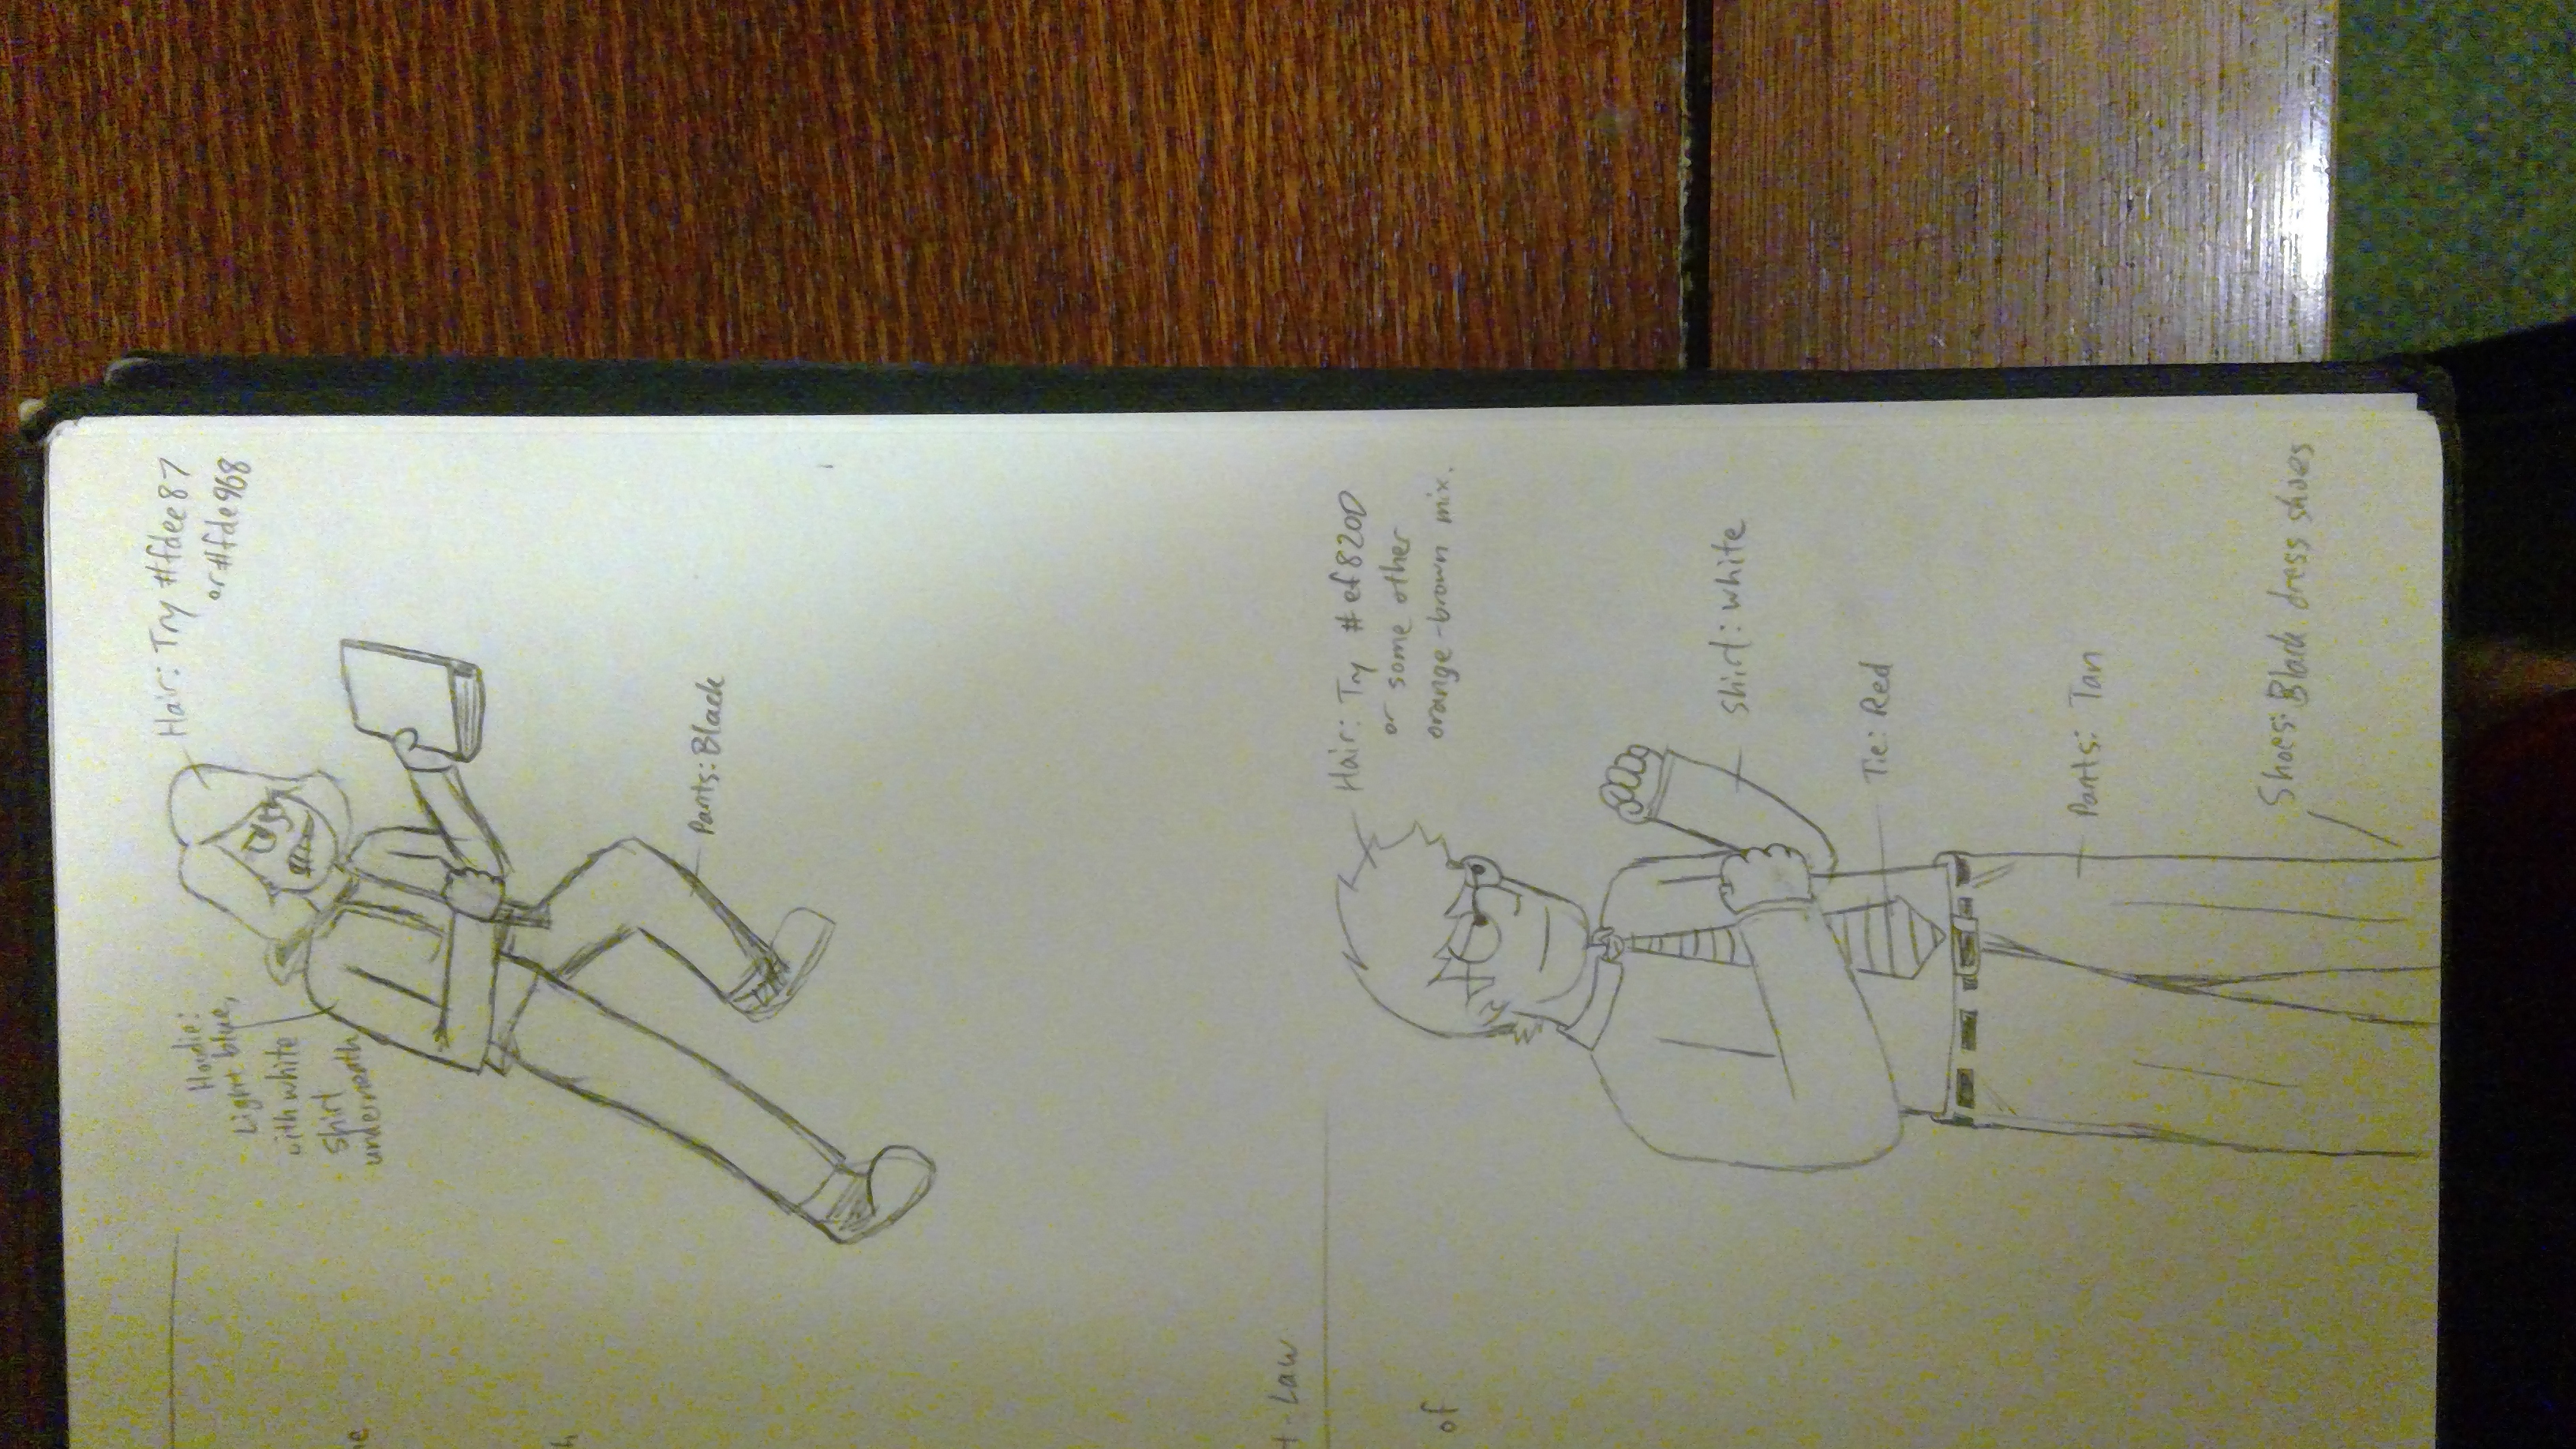 Hair: Try #fdee87
or #fde968
Hoodie:
Light blue,
with white
shirt
underneath
Pants: Black
t-Law
Hair: Try #ef820D
or some other
orange-brown mix.
of
Shirt: white
Tie: Red
Pants: Tan
Shoes: Black dress shoes